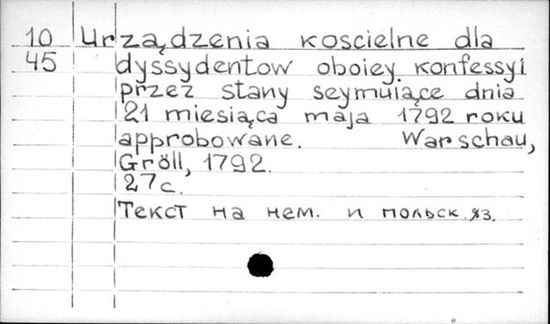 10 Urządzenia koscielne dla
45 dyssydentow oboiey konfessyi
przez stany seymuiące dnia
21 miesiąca maja 1792 roku
approbowane. Warschau,
Gröll, 1792.
27 с.
Текст на нем. и польск. яз.